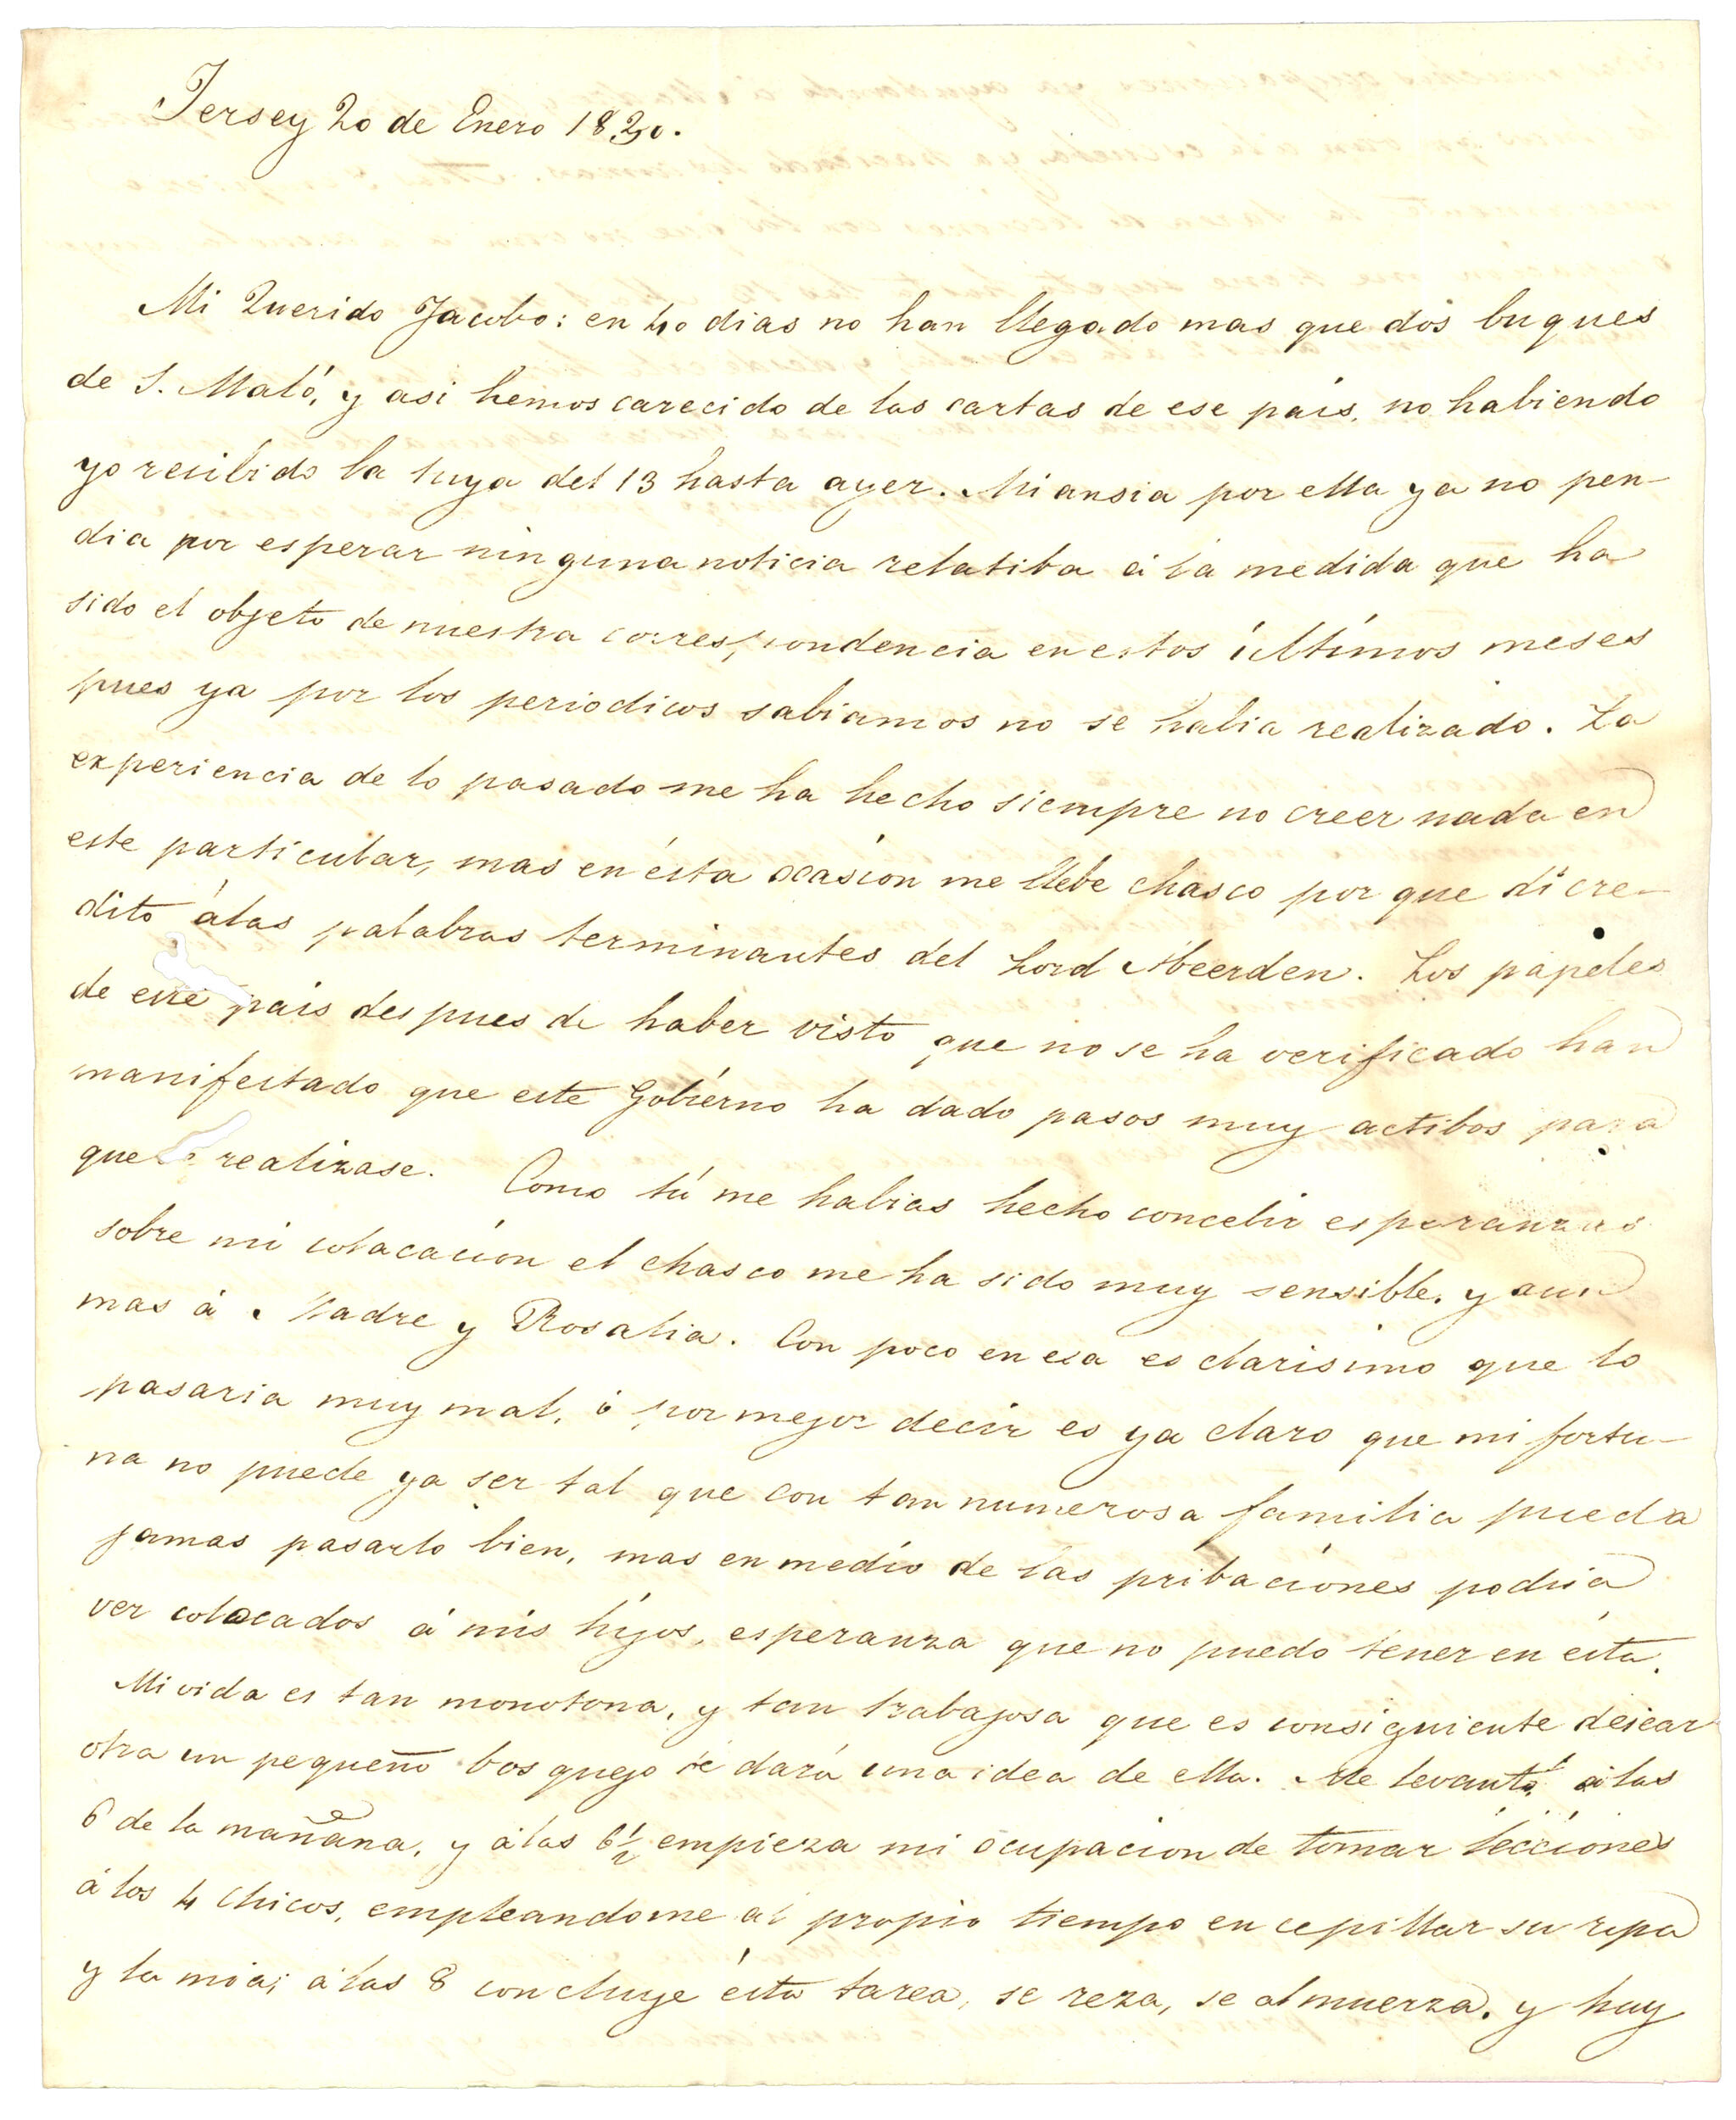 Jersey 20 de Enero 1830.
Mi Querido Jacobo: en 40 dias no han llegado mas que dos buques
de S. Maló, y asi hemos carecido de las cartas de ese pais, no habiendo
yo recibido la tuya del 13 hasta ayer. Mi ansia por ella ya no pen-
dia por esperar ninguna noticia relatiba á la medida que ha
sido el objeto de nuestra correspondencia en estos últimos meses
pues ya por los periodicos sabiamos no se habia realizado. La
experiencia de lo pasado me ha hecho siempre no creer nada en
este particular, mas en ésta ocasion me llebe chasco por que di cre-
dito á las palabras terminantes del Lord Abeerden. Los papeles
de ese pais despues de haber visto que no se ha verificado han
manifestado que este Gobierno ha dado pasos muy actibos para
que se realizase. Como tú me habias hecho concebir esperanzas
sobre mi colacacion el chasco me ha sido muy sensible, y aun
mas á Madre y Rosalia. Con poco en esa es clarisimo que lo
pasaria muy mal, ó por mejor decir es ya claro que mi fortu-
na no puede ya ser tal que con tan numerosa familia pueda
jamas pasarlo bien, mas en medio de las pribaciones podria
ver colocados á mis hijos, esperanza que no puedo tener en ésta.
Mi vida es tan monotona, y tan trabajosa que es consiguiente desear
otra un pequeño bosquejo te dará una idea de ella. Me levanto á las
6 de la mañana, y á las 6½ empieza mi ocupacion de tomar lecciones
á los 4 chicos, empleandome al propio tiempo en cepillar su ropa
y la mia; á las 8 concluye ésta tarea, se reza, se almuerza, y hay